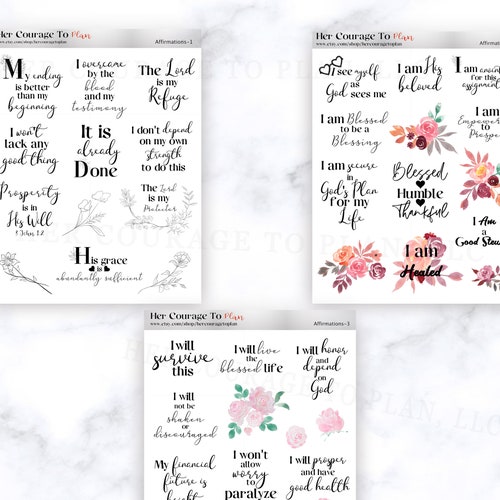 Her Courage To Plan
www.etsy.com/shop/hercouragetoplan
Affirmations-1
My ending
is better
than my
beginning
I overcame
by the
blood
and my
testimony
The Lord
is my
Refuge
I won't
lack any
good thing
It is
already
Done
I don't depend
on my own
strength
to do this
Prosperity
is in
His Will
3 John 1:2
The Lord
is my
Protector
His grace
is
abundantly sufficient
Her Courage To Plan
www.etsy.com/shop/hercouragetoplan
I see myself
as
God
sees me
I am His
beloved
I am anointed
for this
assignment
I am Blessed
to be a
Blessing
I am
Empowered
to
Prosper
I am secure
in
God's Plan
for my
Life
Blessed
Humble
Thankful
I Am
a
Good Stew
I am
Healed
Her Courage To Plan
www.etsy.com/shop/hercouragetoplan
Affirmations-3
I will
survive
this
I will live
the
blessed life
I will honor
and
depend
on
God
I will
not be
shaken
or
discouraged
I won't
allow
worry
to
paralyze
I will prosper
and have
good health
My financial
future is
bright
HER COURAGE TO PLAN, LLC